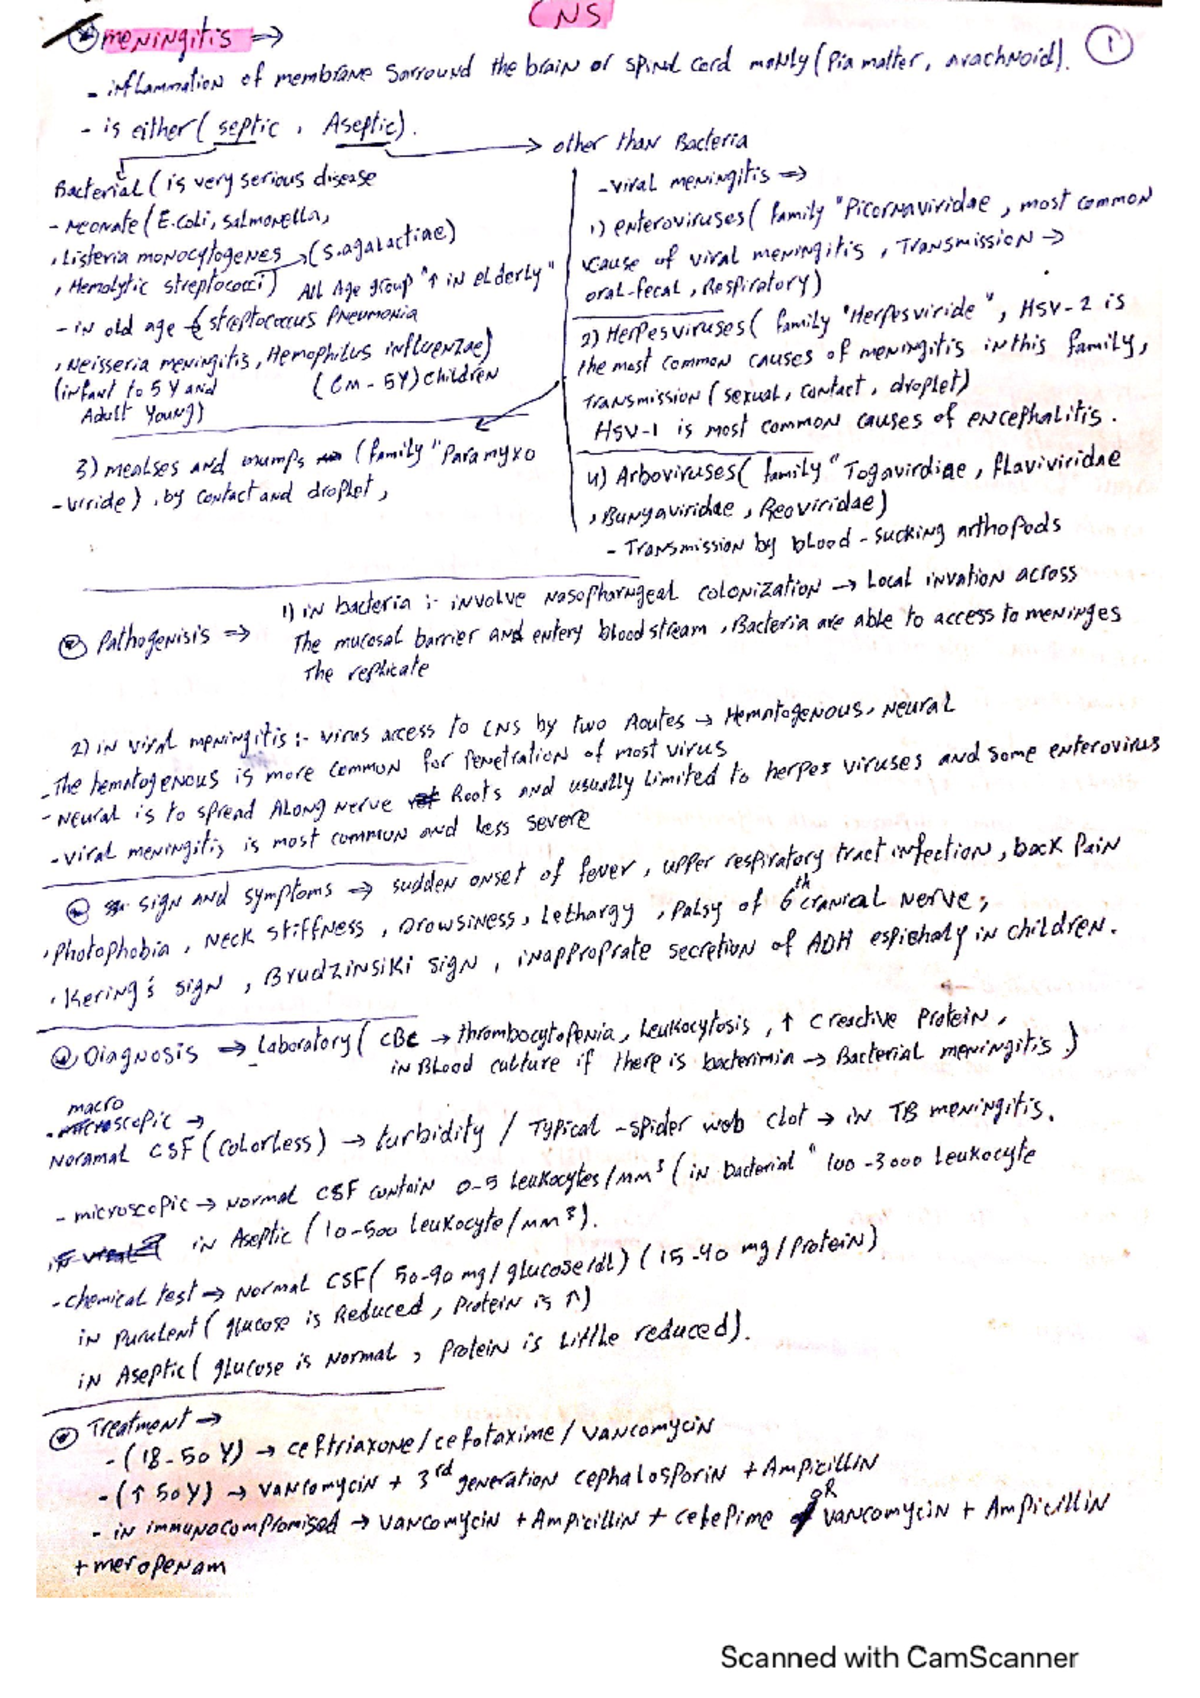 CNS
meningitis ⇒
1
- inflammation of membrane Sorround the brain or spinal cord manly (Pia matter, arachnoid).
- is either ( septic , Aseptic).
Bacterial ( is very serious disease
- Neonate ( E.coli, salmonella,
, Listeria monocytogenes → (S.agalactiae)
, Hemolytic streptococci) All Age group "↑ in elderly"
- in old age ( streptococcus pneumonia
, Neisseria meningitis, Hemophilus influenzae)
(infant to 5 Y and (6m - 5Y) children
Adult Young)
3) mealses and mumps (family "Paramyxo
- virride) , by contact and droplet,
other than Bacteria
- viral meningitis ⇒
1) enteroviruses ( family "Picornaviridae , most common
cause of viral meningitis , Transmission →
oral-fecal , Respiratory)
2) Herpesviruses ( family "Herpesviride" , HSV-2 is
the most common causes of meningitis in this family,
Transmission ( sexual, contact, droplet)
HSV-1 is most common causes of encephalitis.
4) Arboviruses ( family "Togavirdiae , flaviviridae
, Bunyaviridae , Reoviridae)
- Transmission by blood - sucking arthopods
Pathogenisis ⇒ 1) in bacteria :- involve nasopharngeal colonization → Local invation across
The mucosal barrier and entery blood stream , Bacteria are able to access to meninges
The replicate
2) in viral meningitis :- virus access to CNS by two Routes → Hematogenous, Neural
- The hematogenous is more common for penetration of most virus
- Neural is to spread Along nerve Roots and usually limited to herpes viruses and some enterovirus
- viral meningitis is most common and less severe
sign and symptoms ⇒ sudden onset of fever , upper respiratory tract infection , back pain
, Photophobia , Neck stiffness , Drowsiness, Lethargy , Palsy of 6th cranical nerve,
, Kering's sign , Brudzinsiki sign , inapproprate secretion of ADH espichaly in children.
Diagnosis ⇒ Laboratory ( CBC → thrombocytopenia, Leukocytosis , ↑ C reactive protein,
in Blood culture if there is bacterimia → Bacterial meningitis )
macro
- scopic →
Noramal CSF ( colorless) → turbidity / Typical - spider web clot → in TB meningitis.
- microscopic → normal CSF contain 0-5 leukocytes/mm³ ( in bacterial " 100 - 3000 Leukocyte
in Aseptic ( 10-500 Leukocyte/mm³).
- chemical test → Normal CSF ( 50-90 mg/glucose/dl) ( 15-40 mg/protein)
in purulent ( glucose is Reduced, Protein is ↑)
in Aseptic ( glucose is normal , Protein is Little reduced).
Treatment →
- (18-50 Y) → ceftriaxone/cefotaxime/vancomycin
- (↑ 50Y) → vancomycin + 3rd generation cephalosporin + Ampicillin
- in immunocompromised → vancomycin + Ampicillin + cefepime OR vancomycin + Ampicillin
+ meropenam
Scanned with CamScanner